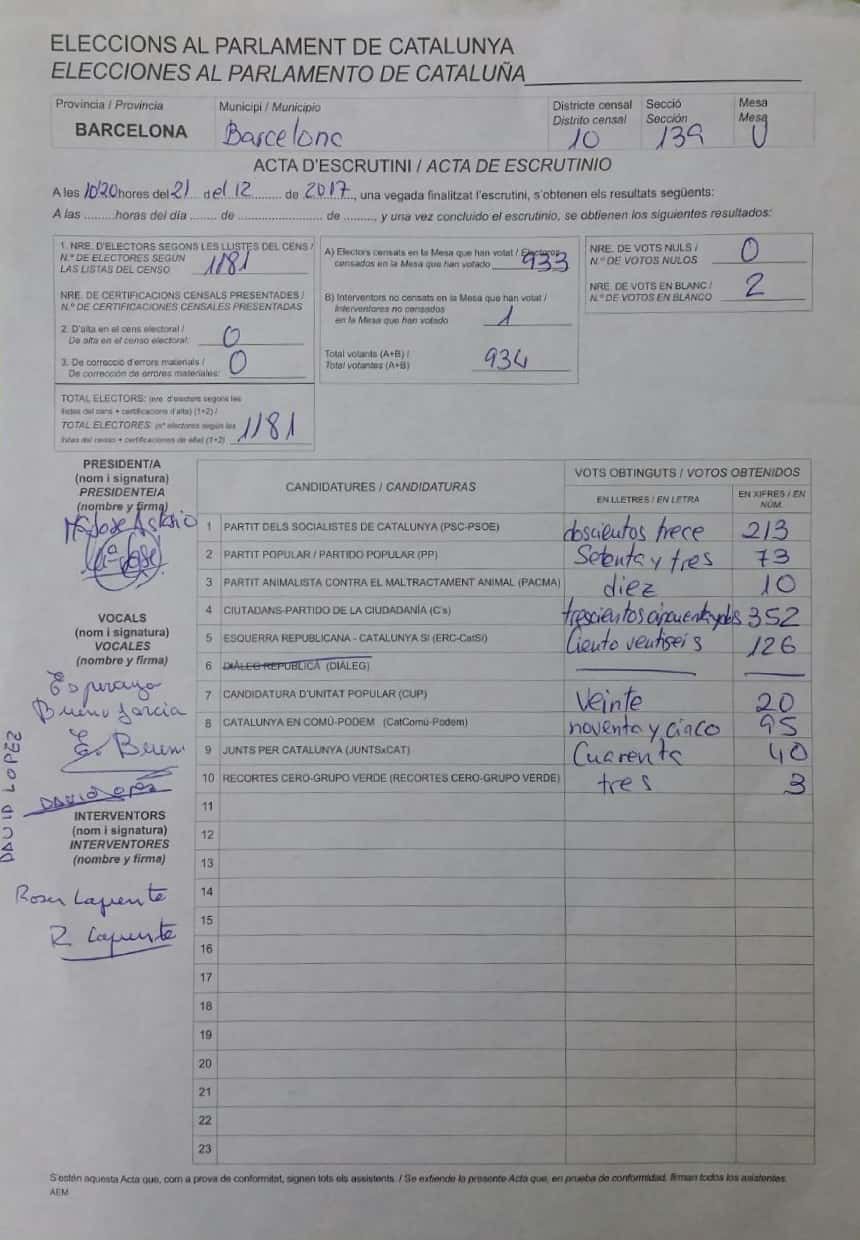 ELECCIONS AL PARLAMENT DE CATALUNYA
ELECCIONES AL PARLAMENTO DE CATALUÑA
Provincia / Provincia
BARCELONA
Municipi / Municipio
Barcelona
Districte censal
Distrito censal
10
Secció
Sección
139
Mesa
Mesa
U
ACTA D'ESCRUTINI / ACTA DE ESCRUTINIO
A les 10/20 hores del 21 del 12 de 2017, una vegada finalitzat l'escrutini, s'obtenen els resultats següents:
A las ......... horas del día ........ de ...................... de ........., y una vez concluido el escrutinio, se obtienen los siguientes resultados:
1. NRE. D'ELECTORS SEGONS LES LLISTES DEL CENS /
N.º DE ELECTORES SEGÚN
LAS LISTAS DEL CENSO 1181
NRE. DE CERTIFICACIONS CENSALS PRESENTADES /
N.º DE CERTIFICACIONES CENSALES PRESENTADAS
2. D'alta en el cens electoral /
De alta en el censo electoral: 0
3. De correcció d'errors materials /
De corrección de errores materiales: 0
TOTAL ELECTORS: (nre. d'electors segons les
llistes del cens + certificacions d'alta) (1+2) /
TOTAL ELECTORES: (nº electores según las
listas del censo + certificaciones de alta) (1+2) 1181
A) Electors censats en la Mesa que han votat / Electores
censados en la Mesa que han votado 933
B) Interventors no censats en la Mesa que han votat /
Interventores no censados
en la Mesa que han votado 1
Total votants (A+B) /
Total votantes (A+B) 934
NRE. DE VOTS NULS /
N.º DE VOTOS NULOS 0
NRE. DE VOTS EN BLANC /
N.º DE VOTOS EN BLANCO 2
PRESIDENT/A
(nom i signatura)
PRESIDENTE/A
(nombre y firma)
Mª Jose
Mª Jose
VOCALS
(nom i signatura)
VOCALES
(nombre y firma)
Esperanza
Bueno Garcia
E. Bueno
DAVID LOPEZ
DAVID LOPEZ
INTERVENTORS
(nom i signatura)
INTERVENTORES
(nombre y firma)
Roser Lapuente
R Lapuente
CANDIDATURES / CANDIDATURAS
VOTS OBTINGUTS / VOTOS OBTENIDOS
EN LLETRES / EN LETRA
EN XIFRES / EN NÚM.
1 PARTIT DELS SOCIALISTES DE CATALUNYA (PSC-PSOE) doscientos trece 213
2 PARTIT POPULAR / PARTIDO POPULAR (PP) Setenta y tres 73
3 PARTIT ANIMALISTA CONTRA EL MALTRACTAMENT ANIMAL (PACMA) diez 10
4 CIUTADANS-PARTIDO DE LA CIUDADANÍA (C's) trescientos cincuentaydos 352
5 ESQUERRA REPUBLICANA - CATALUNYA SI (ERC-CatSí) Ciento ventiseis 126
6 DIÀLEG REPUBLICÀ (DIÀLEG)
7 CANDIDATURA D'UNITAT POPULAR (CUP) Veinte 20
8 CATALUNYA EN COMÚ-PODEM (CatComú-Podem) noventa y cinco 95
9 JUNTS PER CATALUNYA (JUNTSxCAT) Cuarenta 40
10 RECORTES CERO-GRUPO VERDE (RECORTES CERO-GRUPO VERDE) tres 3
11
12
13
14
15
16
17
18
19
20
21
22
23
S'estén aquesta Acta que, com a prova de conformitat, signen tots els assistents. / Se extiende la presente Acta que, en prueba de conformidad, firman todos los asistentes.
AEM